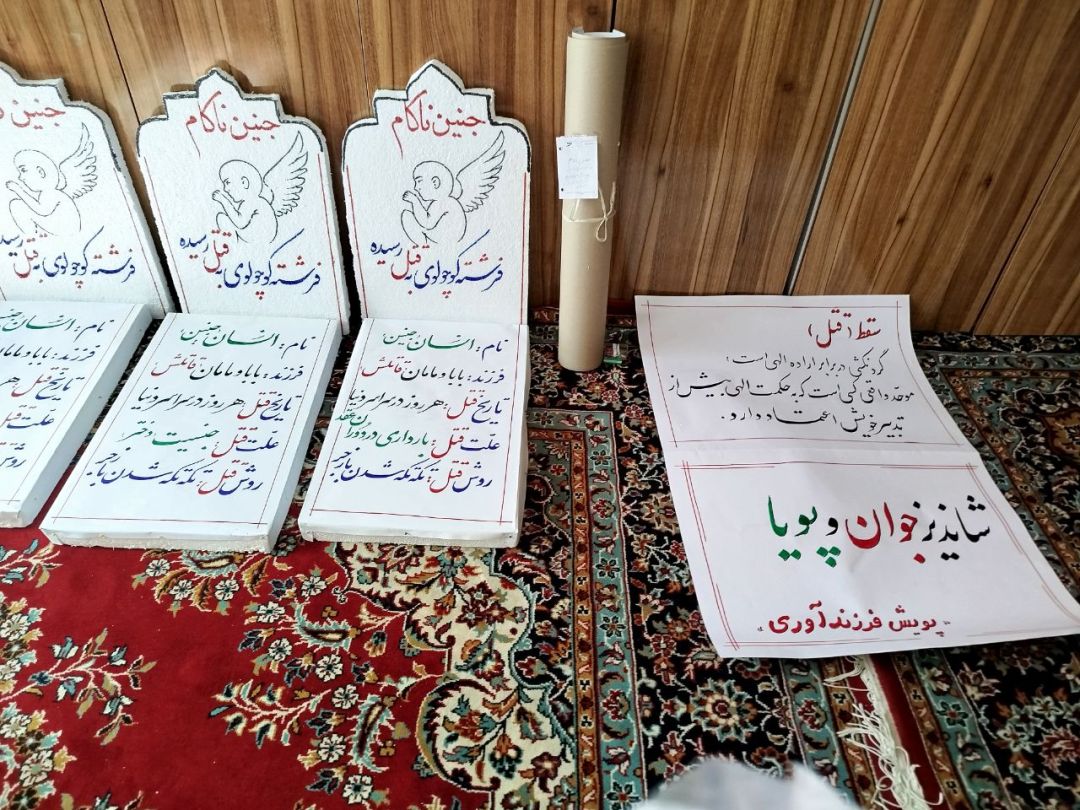 جنین ناکام
فرشته کوچولوی به قتل رسیده
نام: انسان جنین
فرزند: بابا و مامان قاتلش
تاریخ قتل: هر روز در سراسر دنیا
علت قتل: بارداری در دوران عقد
روش قتل: تکه تکه شدن با زجر
جنین ناکام
فرشته کوچولوی به قتل رسیده
نام: انسان جنین
فرزند: بابا و مامان قاتلش
تاریخ قتل: هر روز در سراسر دنیا
علت قتل: جنسیت دختر
روش قتل: تکه تکه شدن با زجر
جنین
فرشته کوچولوی به قتل رسیده
نام: انسان جنین
فرزند: بابا و مامان
تاریخ قتل: هر
علت قتل:
روش
سقط (قتل)
گردنکشی در برابر اراده الهی است؛
موحد واقعی کسی است که به حکمت الهی بیش از
تدبیر خویش اعتماد دارد.
شاندیز جوان و پویا
"پویش فرزندآوری"